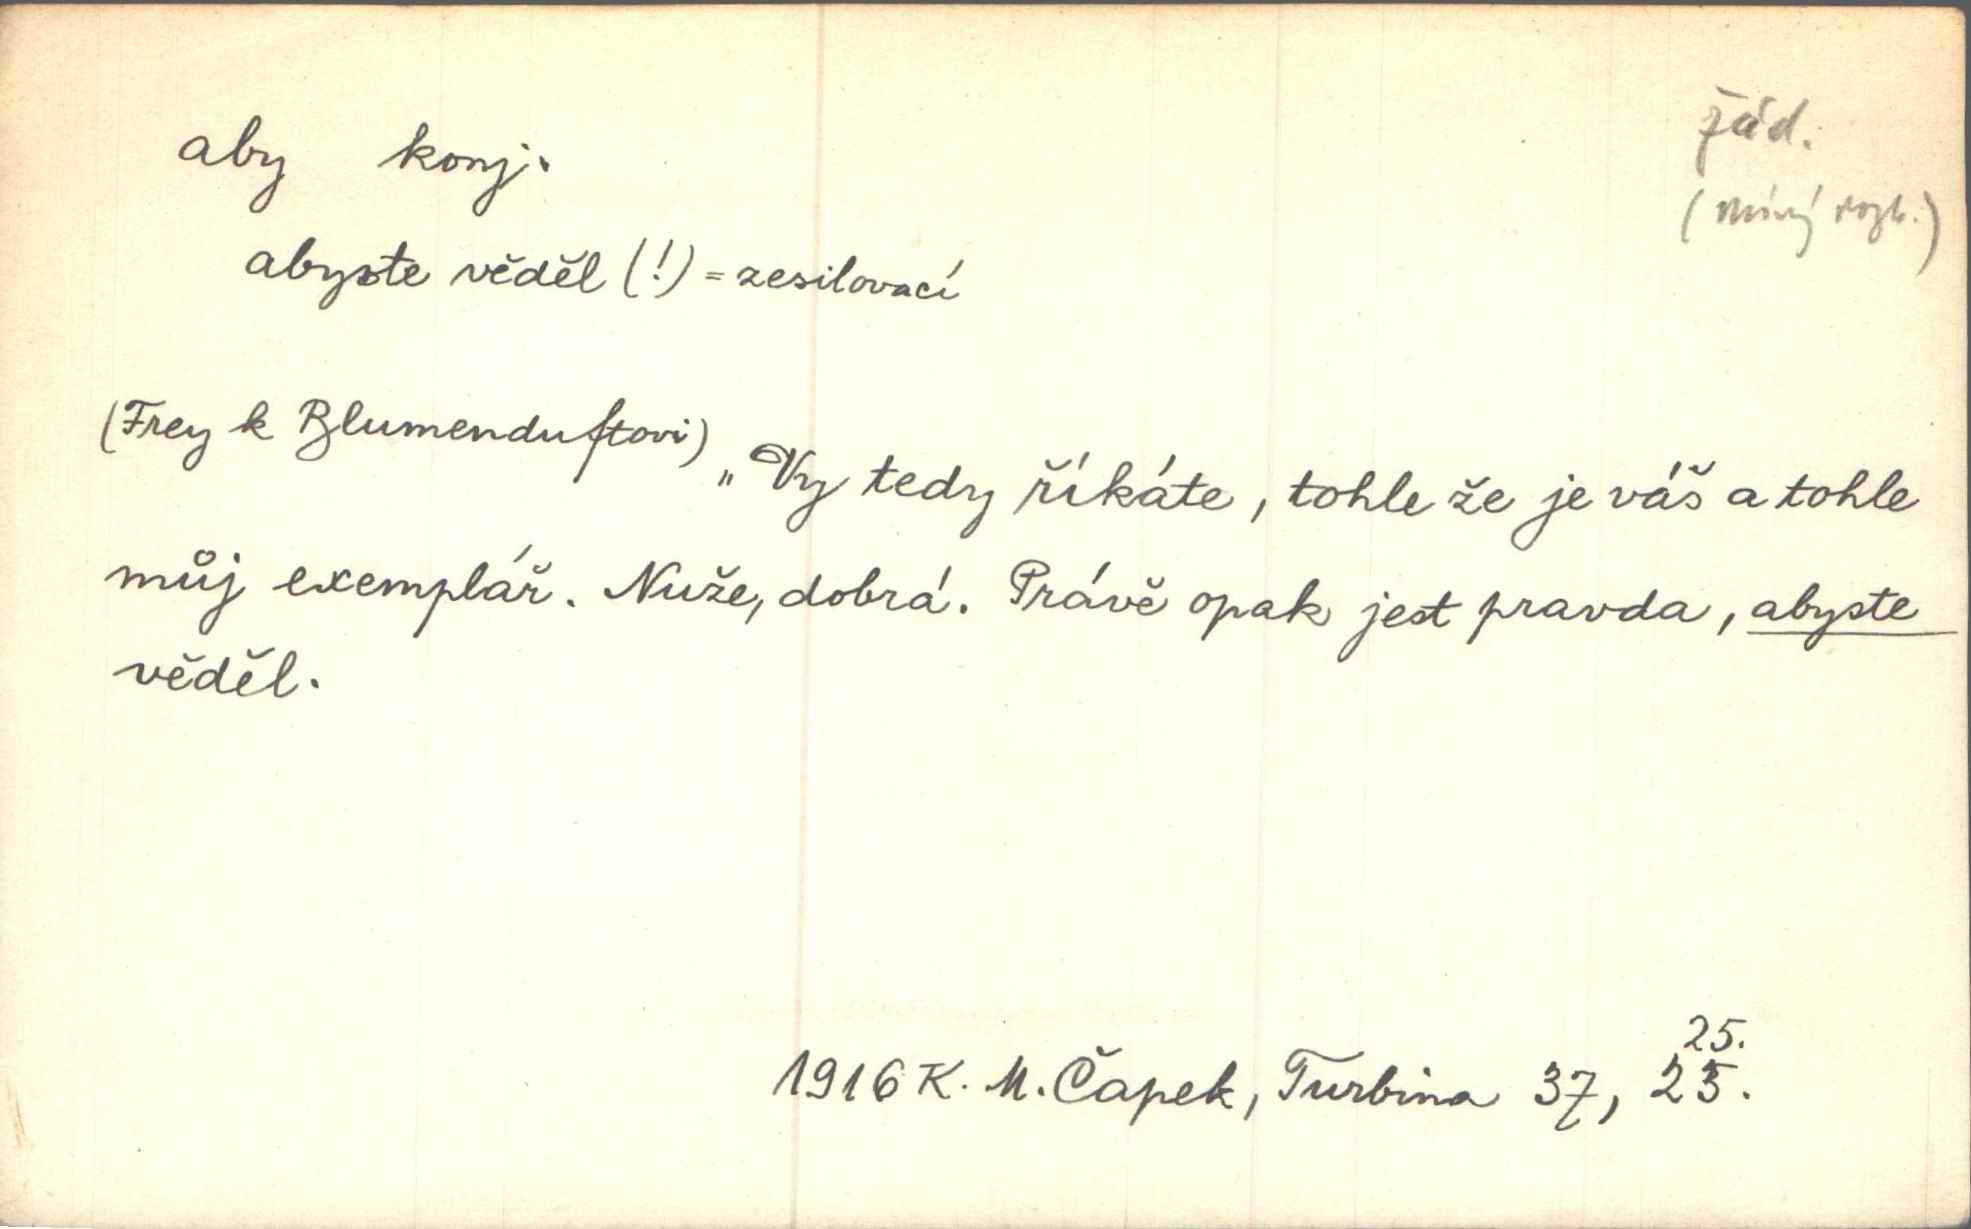 aby konj.
žád.
abyste věděl (!) = zesilovací
(Frey k Blumenduftovi) „Vy tedy říkáte, tohle že je váš a tohle
můj exemplář. Nuže, dobrá. Právě opak jest pravda, abyste
věděl.
25.
1916 K. M. Čapek, Turbina 37, 25.